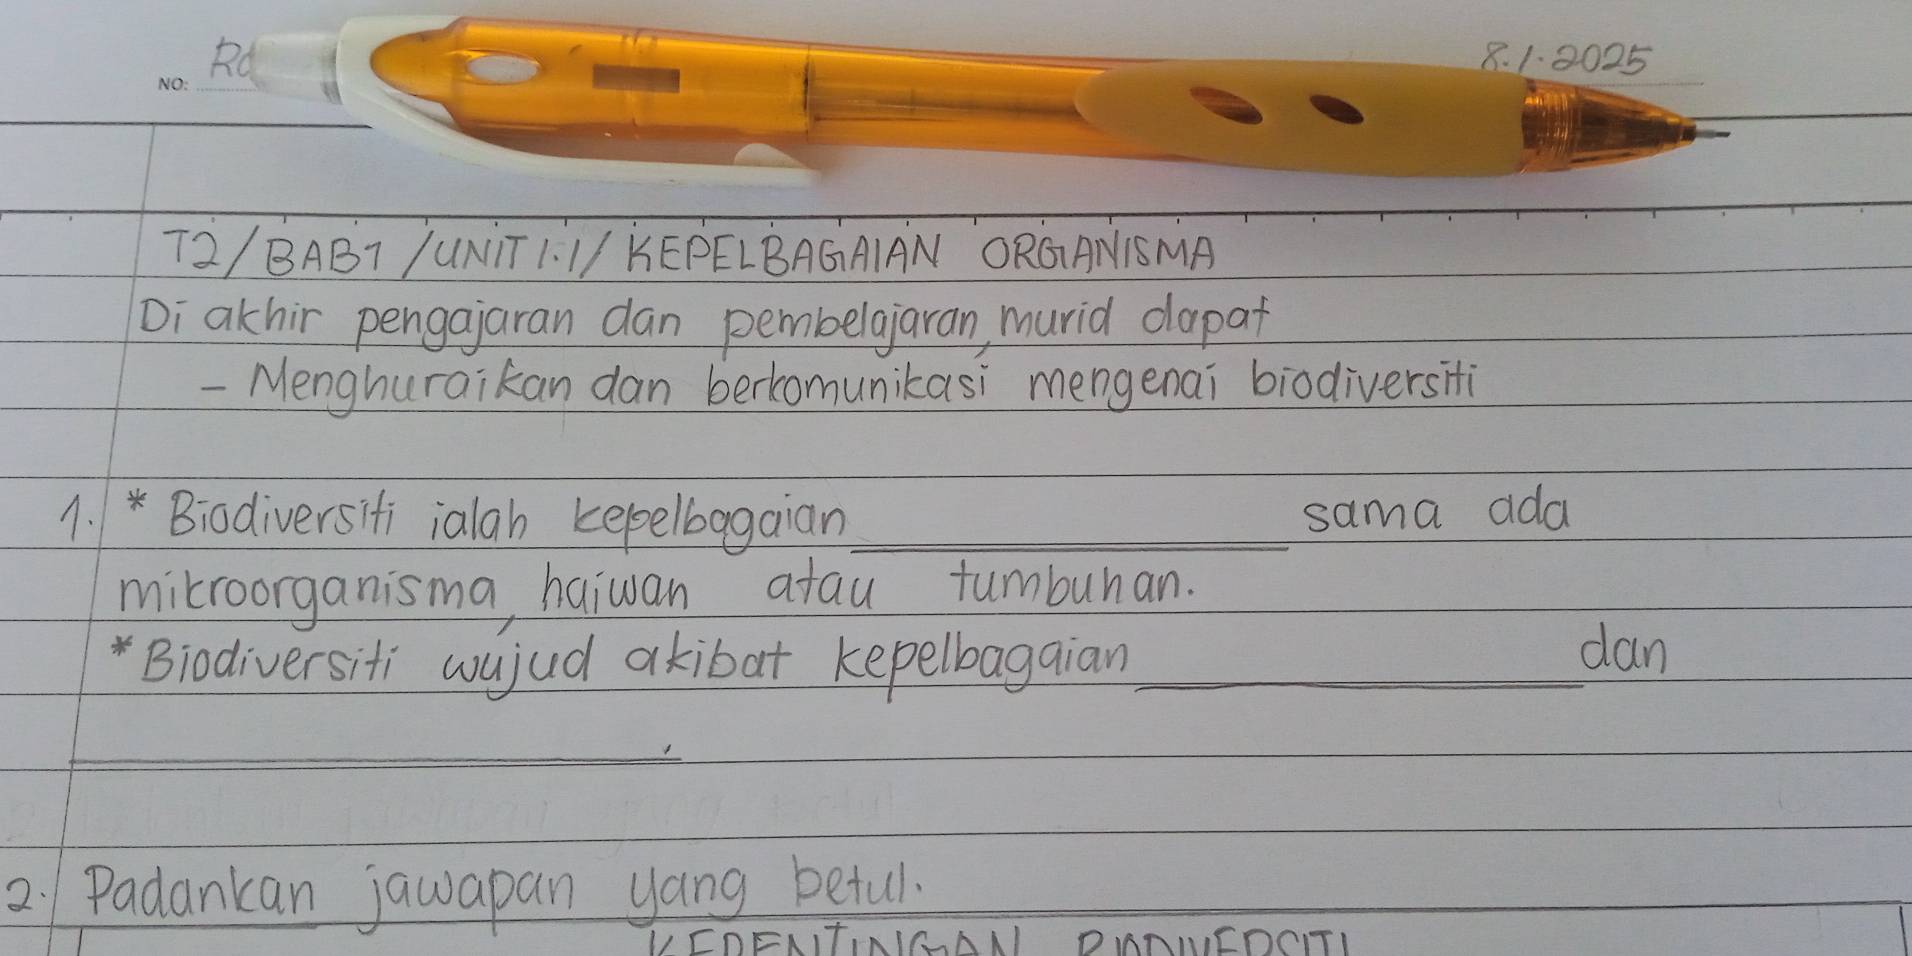 NO:
8.1.2025
T2/BAB1/UNIT 1.1/KEPELBAGAIAN ORGANISMA
Di akhir pengajaran dan pembelajaran, murid dapat
- Menghuraikan dan berkomunikasi mengenai biodiversiti
1. * Biodiversiti ialah kepelbagaian __________ sama ada
mikroorganisma, haiwan atau tumbuhan.
* Biodiversiti wujud akibat kepelbagaian __________ dan
__________.
2. Padankan jawapan yang betul.
KEPENTINGAN BIODIVERSITI